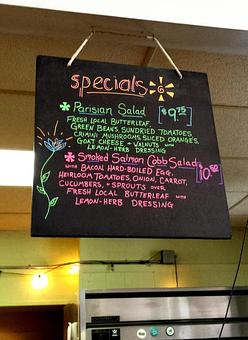 specials
Parisian Salad $9.75
FRESH LOCAL BUTTERLEAF,
GREEN BEANS, SUNDRIED TOMATOES
CRIMINI MUSHROOMS, SLICED ORANGES,
GOAT CHEESE + WALNUTS WITH
LEMON-HERB DRESSING
Smoked Salmon Cobb Salad
WITH BACON, HARD-BOILED EGG,
HEIRLOOM TOMATOES, ONION, CARROT,
CUCUMBERS, + SPROUTS OVER
FRESH LOCAL BUTTERLEAF WITH
LEMON-HERB DRESSING